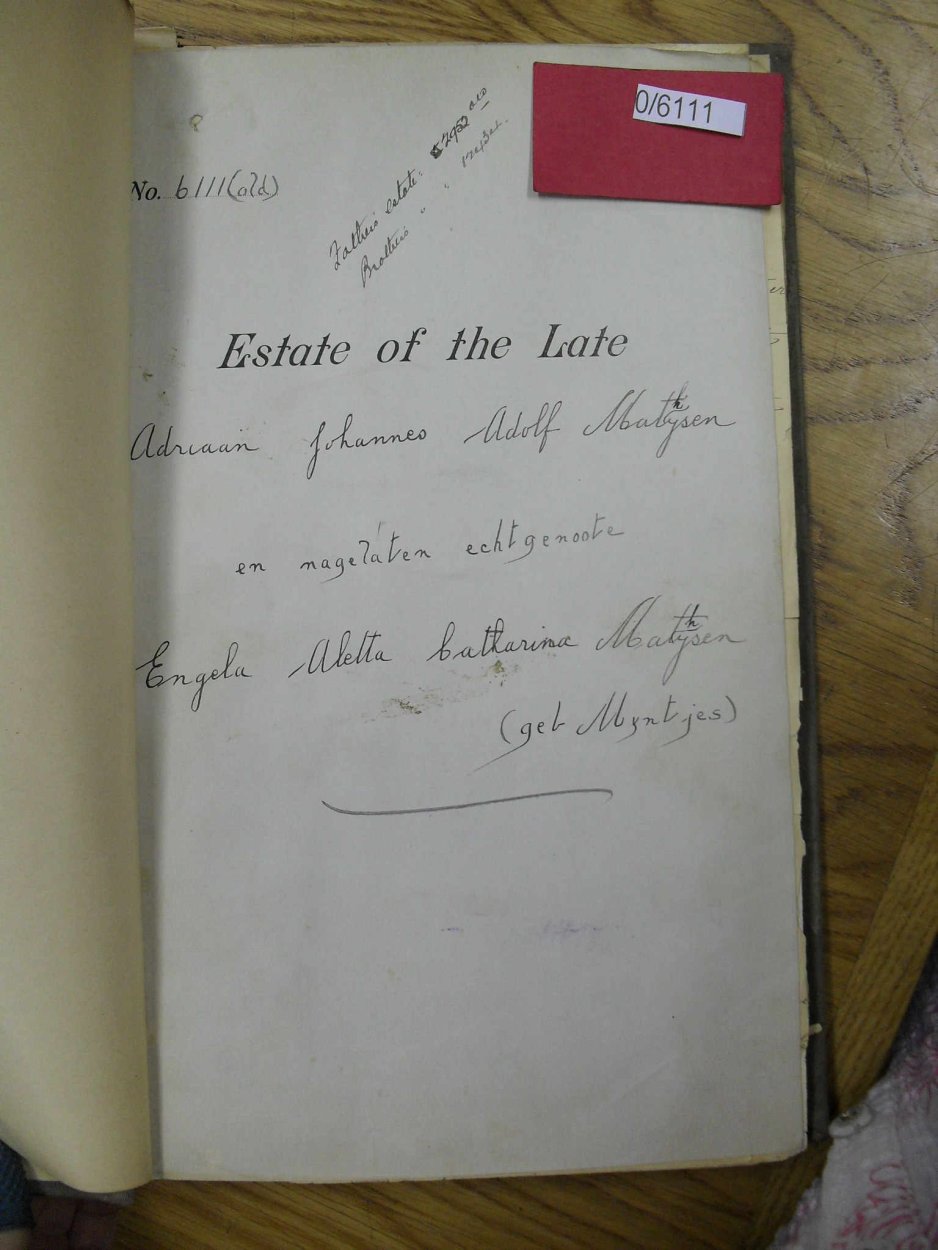 0/6111
No. 6111 (old)
Father's estate: 2952
Brother's " "
Estate of the Late
Adriaan Johannes Adolf Mathysen
en nagelaten echtgenoote
Engela Aletta Catharina Mathysen
(geb Myntjes)